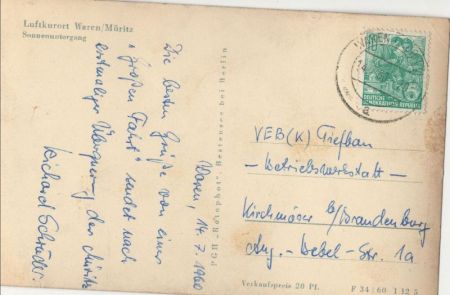 Luftkurort Waren/Müritz
Sonnenuntergang
Waren, 14.7.1960
Die besten Grüße von einer
"großen Fahrt" sendet nach
erstmaliger Überquerung der Müritz
Richard Schröder.
PGH „Rotophot“, Bestensee bei Berlin
WAREN
DEUTSCHE
DEMOKRATISCHE REPUBLIK
5
a
VEB (K) Tiefbau
- Betriebswerkstatt -
Kirchmöser b/Brandenburg
Aug.-Bebel-Str. 1a
Verkaufspreis 20 Pf.
F 34/60 I 12 5